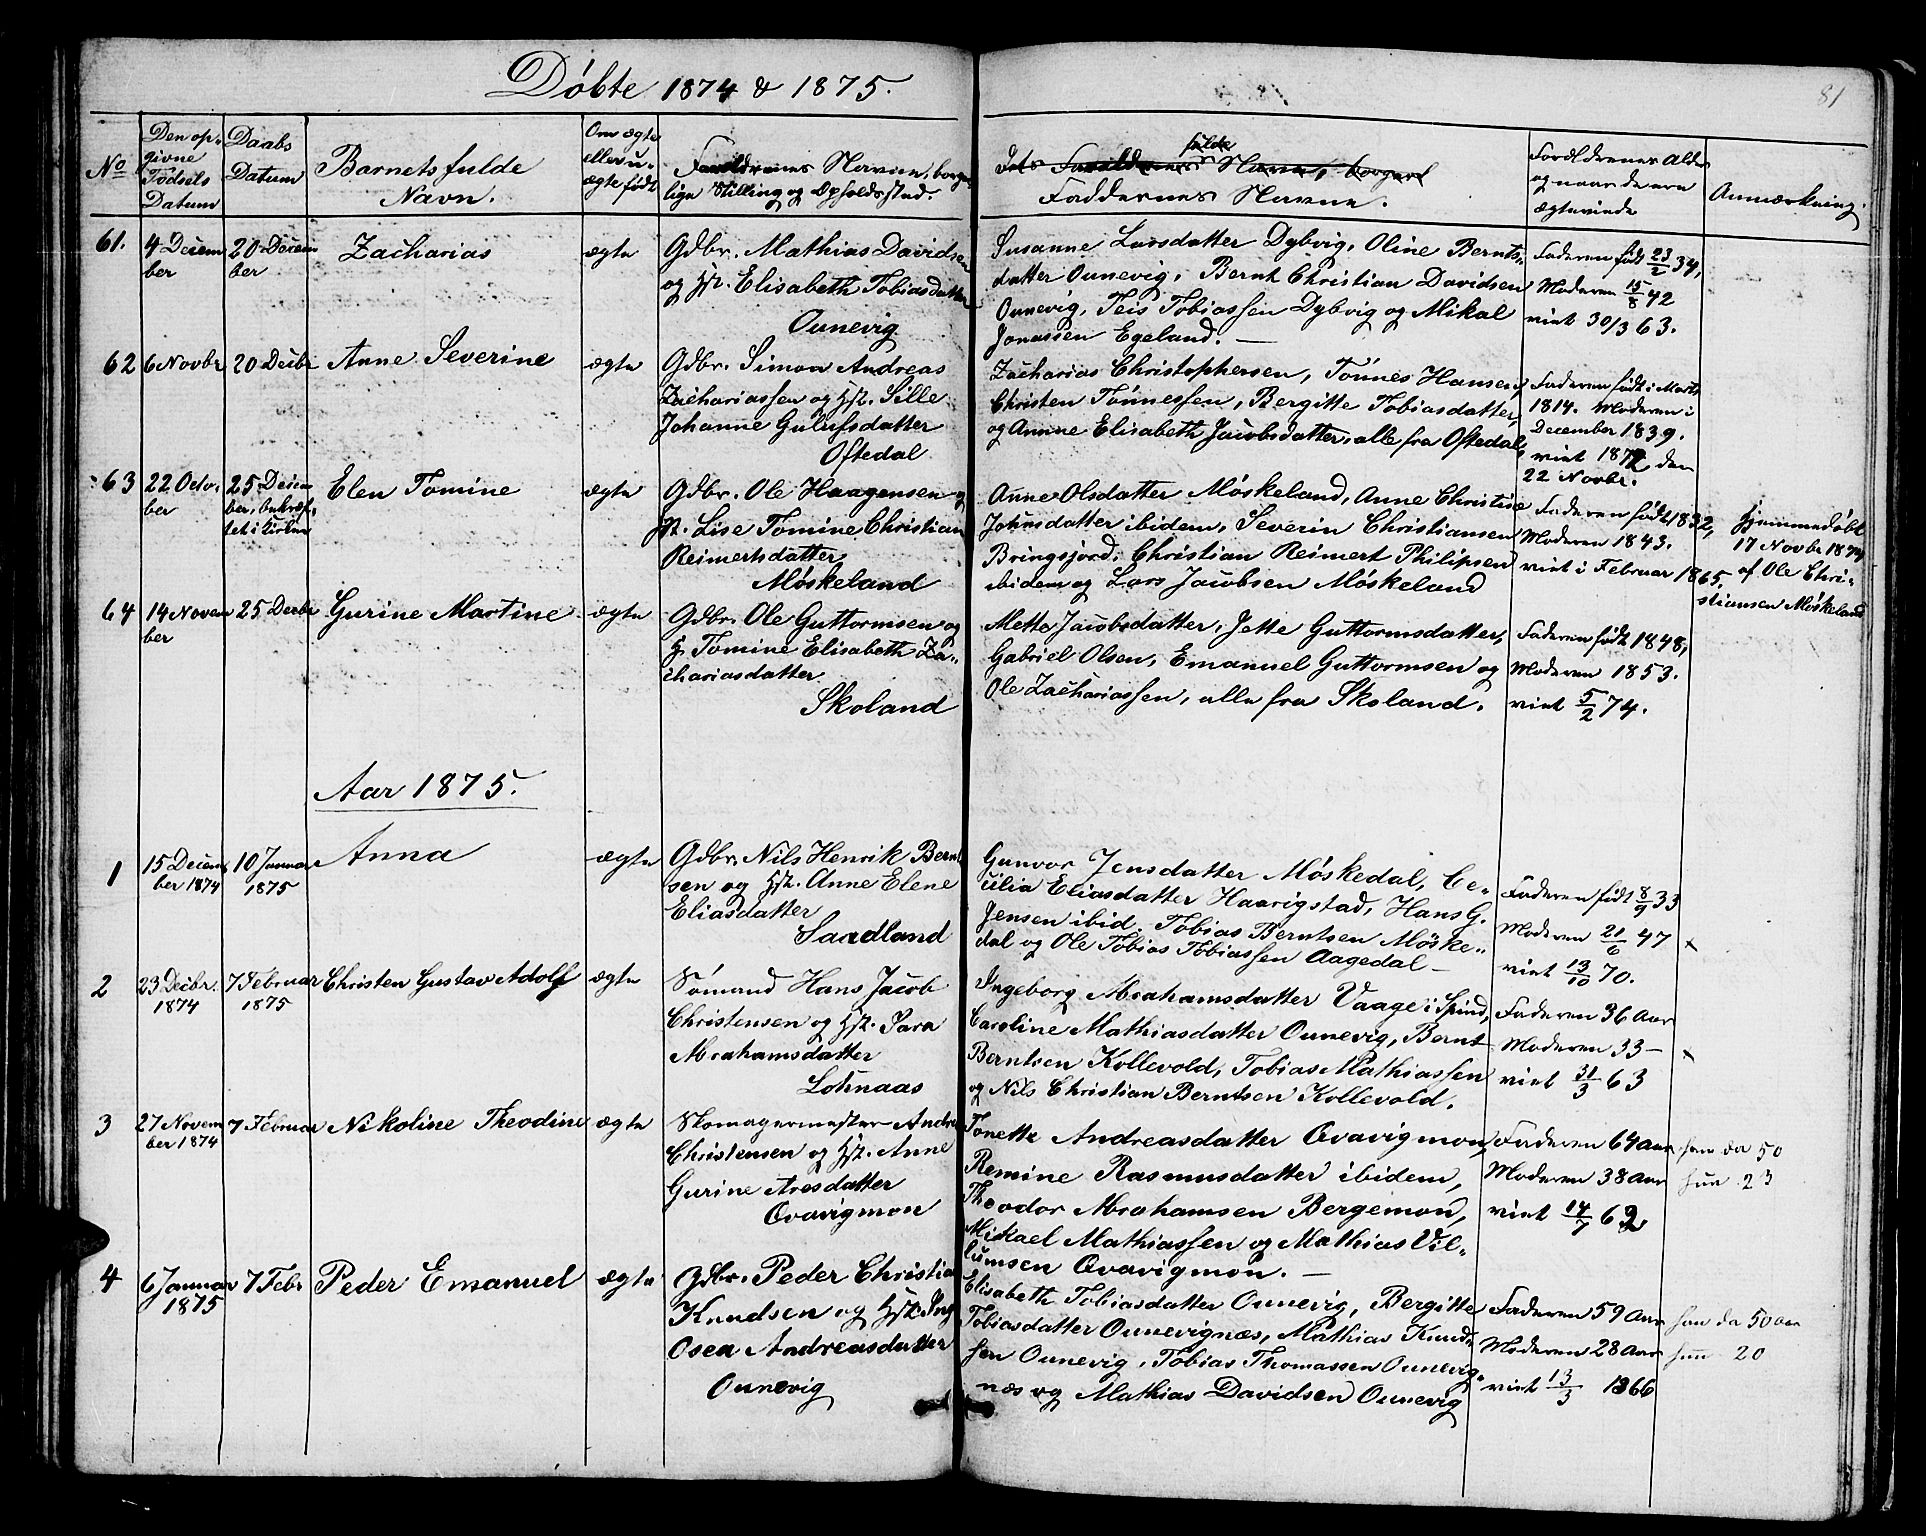 Døbte 1874 & 1875.
81
No
Den op-
givne
Fødsels
Datum
Daabs
Datum
Barnets fulde
Navn.
Om ægte
eller u-
ægte født
Forældrenes Navne, borger-
lige Stilling og Opholdssted.
fulde
Forældrenes Navne, borgerl
Faddernes Navne.
Forældrenes Alder
og naar de ere
ægteviede
Anmærkning.
61.
4 Decem
ber
20 Decem
ber
Zacharias
ægte
Gdbr. Mathias Davidsen
og Hst. Elisabeth Tobiasdatter
Ounevig
Susanne Larsdatter Dybvig, Oline Bernts-
datter Ounevig, Bernt Christian Davidsen
Ounevig, Teis Tobiassen Dybvig og Mikal
Jonassen Egeland. —
Faderen født 23/2 34,
Moderen 15/8 42
viet 30/3 63.
62
6 Novbr
20 Decbr
Anne Severine
ægte
Gdbr. Simon Andreas
Zachariassen og Hst. Sille
Johanne Gulufsdatter
Oftedal
Zacharias Christophersen, Tönnes Hansen,
Christen Tönnessen, Bergitte Tobiasdatter,
og Annne Elisabeth Jacobsdatter, alle fra Oftedal
Faderen født i Marts
1814. Moderen i
December 1839.
viet 1872 den
22 Novbr.
63
22 Octo-
ber
25 Decem
ber, bekræf-
tet i Kirken
Elen Tomine
ægte
Gdbr. Ole Haagensen og
Hst. Lise Tomine Christian
Reimertsdatter
Möskeland
Anne Olsdatter Möskeland, Anne Christine
Johnsdatter ibidem, Severin Christiansen
Bringsjord, Christian Reimert Philipsen
ibidem og Lars Jacobsen Möskeland
Faderen født 1832,
Moderen 1843.
viet i Februar 1865.
Hjemmedöbt
17 Novbr 1874
af Ole Chri-
stiansen Möskeland
64
14 Novem
ber
25 Decbr
Gurine Martine
ægte
Gdbr. Ole Guttormsen og
H. Tomine Elisabeth Za-
chariasdatter
Skoland
Mette Jacobsdatter, Jette Guttormsdatter,
Gabriel Olsen, Emanuel Guttormsen og
Ole Zachariassen, alle fra Skoland.
Faderen født 1848,
Moderen 1853.
viet 5/2 74.
Aar 1875.
1
15 Decem
ber 1874
10 Januar
1875
Anna
ægte
Gdbr. Nils Henrik Bernt
sen og Hst. Anne Elene
Eliasdatter
Saadland
Gunvor Jensdatter Möskedal, Ce-
cilia Eliasdatter Haarigstad, Hans G.
Jensen ibid. Tobias Berntsen Möske-
dal og Ole Tobias Tobiassen Aagedal —
Faderen født 8/9 33
Moderen 21/6 47
viet 13/10 70.
x
2
23 Decbr.
1874
7 Februar
1875
Christen Gustav Adolf
ægte
Sömand Hans Jacob
Christensen og Hst. Sara
Abrahamsdatter
Lohnaas
Ingeborg Abrahamsdatter Vaage i Spind,
Caroline Mathiasdatter Ounevig, Bernt
Berntsen Kollevold, Tobias Mathiassen
og Nils Christian Berntsen Kollevold.
Faderen 36 Aar
Moderen 33 —
viet 31/3 63
x
3
27 Novem
ber 1874
7 Februar
Nikoline Theodine
ægte
Skomagermester Andre
Christensen og Hst. Anne
Gurine Aresdatter
Qvavigmon
Tonette Andreasdatter Qvavigmon,
Remine Rasmusdatter ibidem,
Theodor Abrahamsen Bergemon,
Mikael Mathiassen og Mathias Vil-
lumsen Qvavigmon. —
Faderen 64 Aar
Moderen 38 Aar
viet 14/7 62
han da 50
hun 23
4
6 Januar
1875
7 Febr
Peder Emanuel
ægte
Gdbr. Peder Christia
Knudsen og Hst. Ing
Osea Andreasdatter
Ounevig
Elisabeth Tobiasdatter Ounevig, Bergitte
Tobiasdatter Ounevignæs, Mathias Knud-
sen Ounevig, Tobias Thomassen Ounevig-
næs og Mathias Davidsen Ounevig
Faderen 59 Aar
Moderen 28 Aar
viet 13/3 1866
han da 50 aar
hun 20